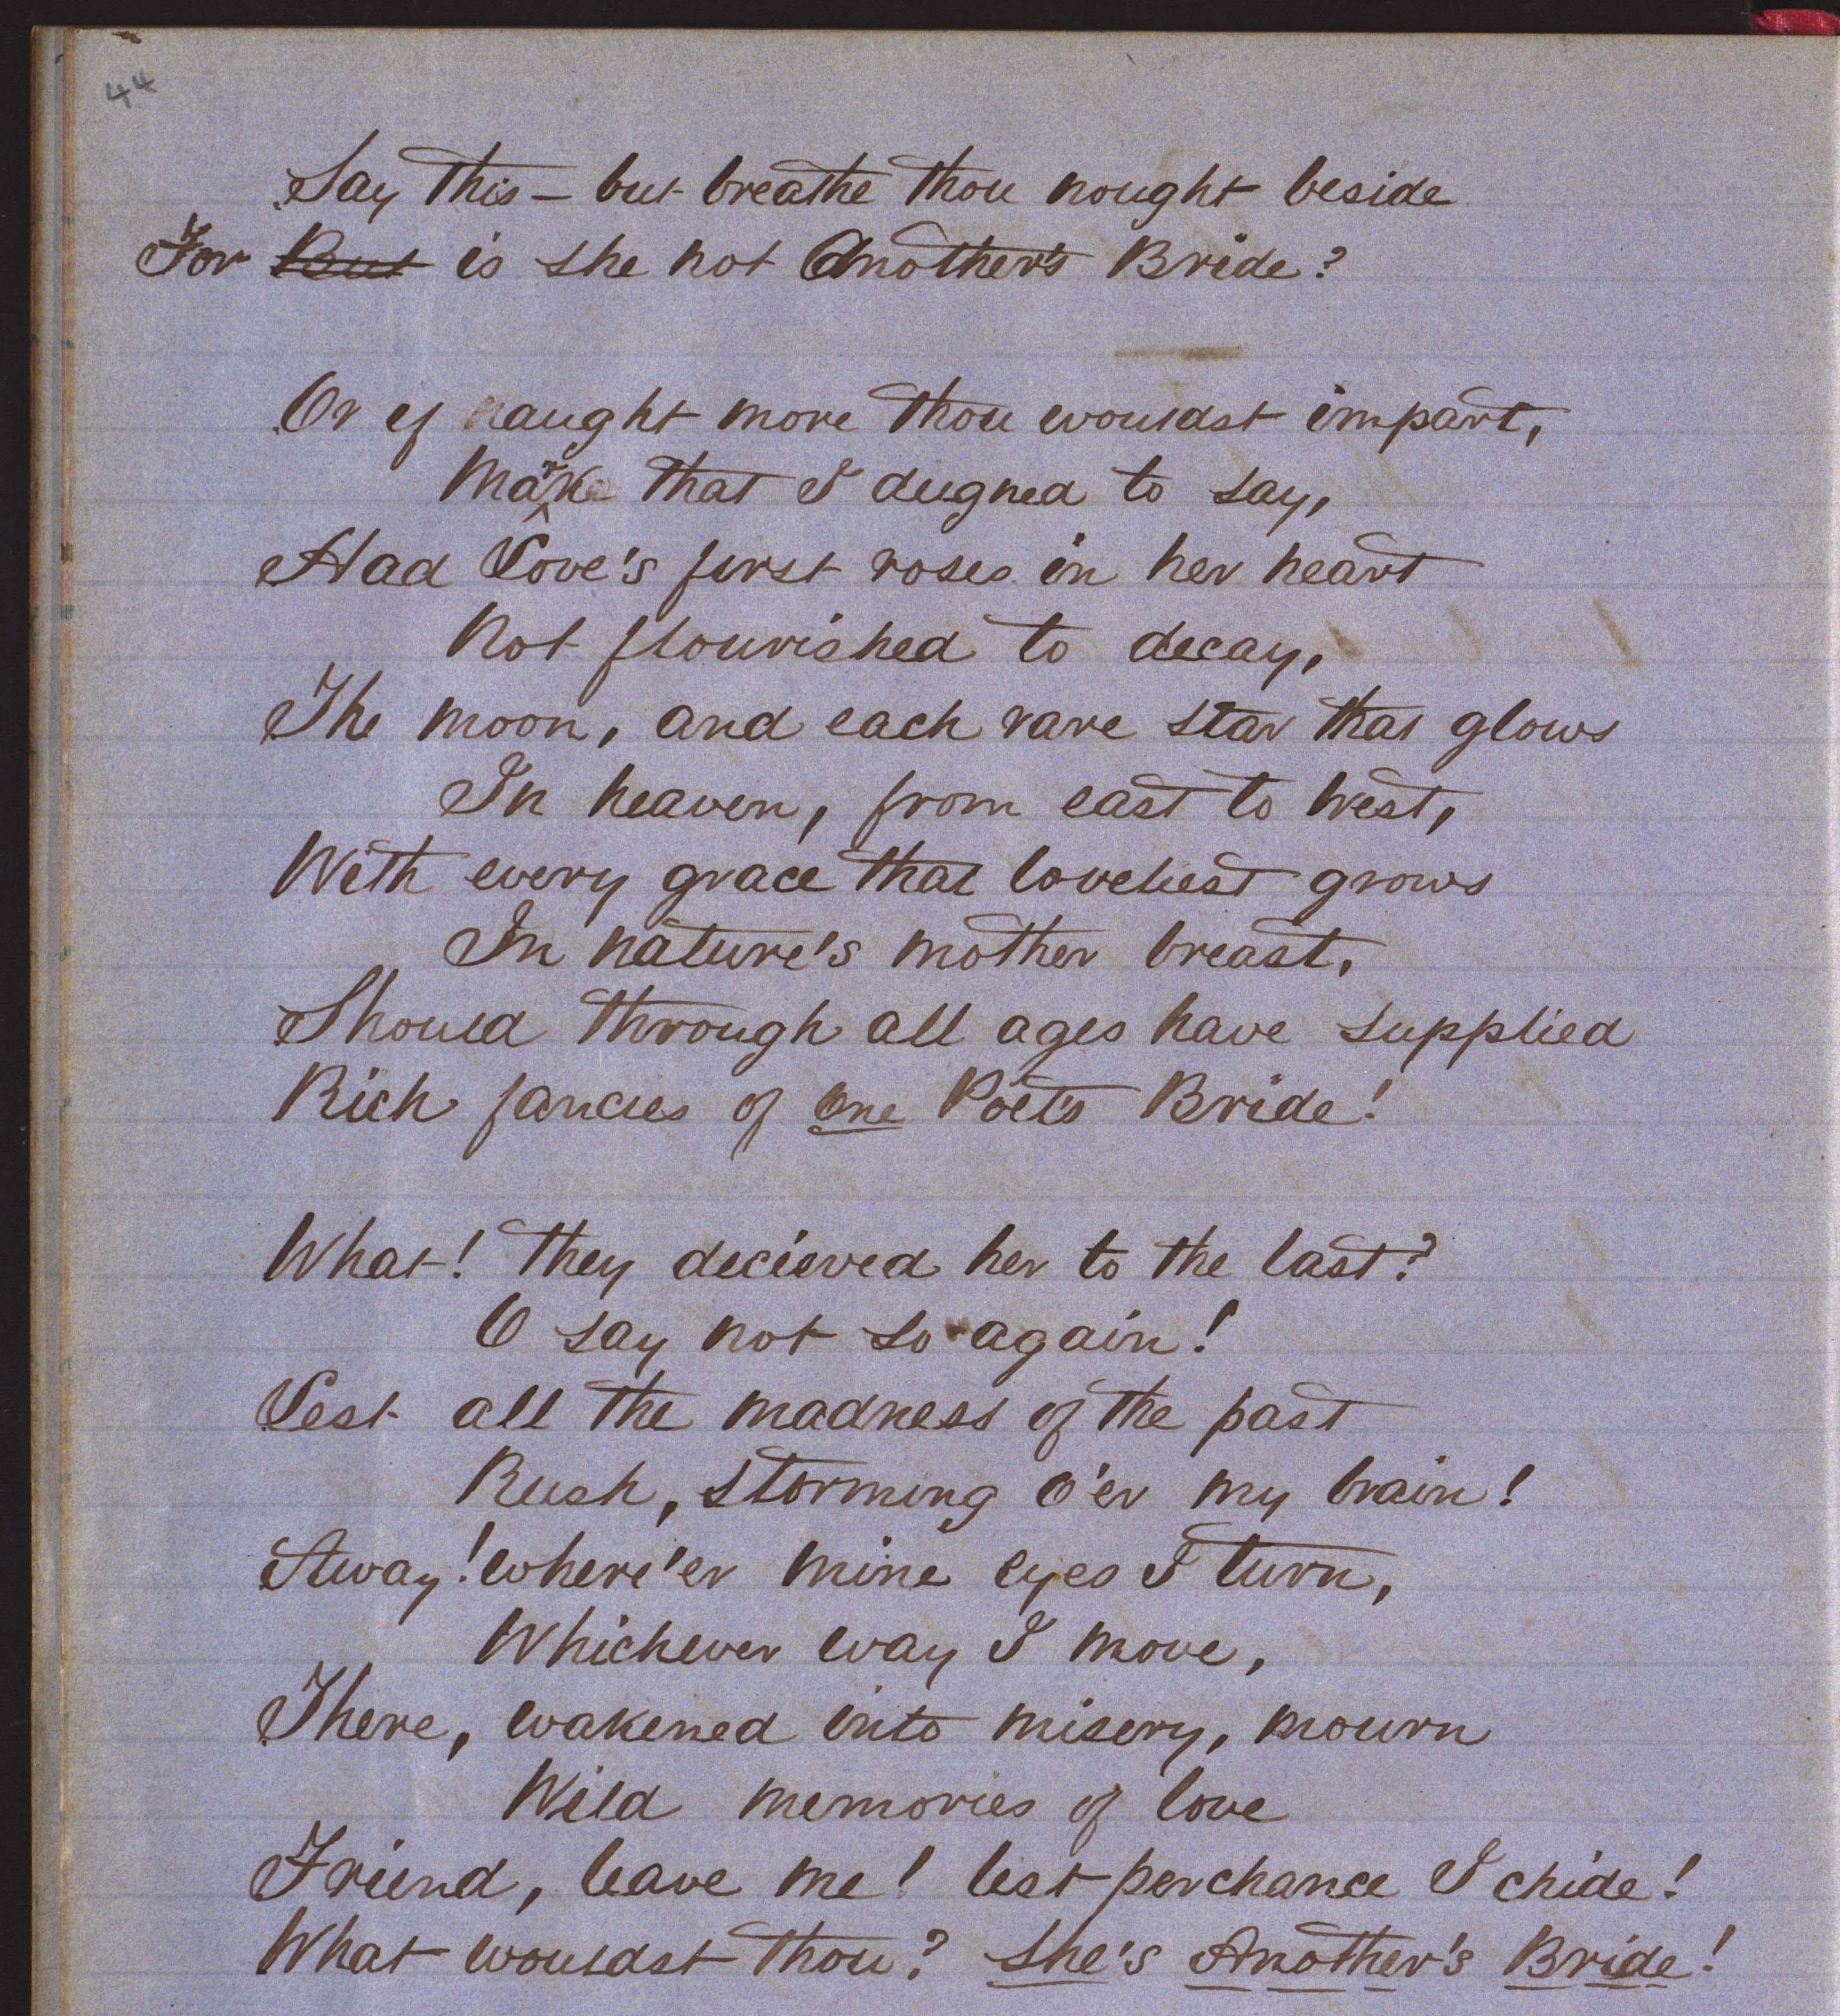 44
Say this – but breathe thou nought beside
For But is she not Another's Bride?
Or if naught more thou wouldst impart,
Mark that I deigned to say,
Had Love's first roses in her heart
Not flourished to decay,
The moon, and each rare star that glows
In heaven, from east to west,
With every grace that loveliest grows
In nature's mother breast,
Should through all ages have supplied
Rich fancies of one Poet's Bride!
What! they decieved her to the last?
O say not so again!
Lest all the madness of the past
Rush, storming o'er my brain!
Away! where'er mine eyes I turn,
Whichever way I move,
There, wakened into misery, mourn
Wild memories of love
Friend, leave me! lest perchance I chide!
What wouldst thou? She's Another's Bride!